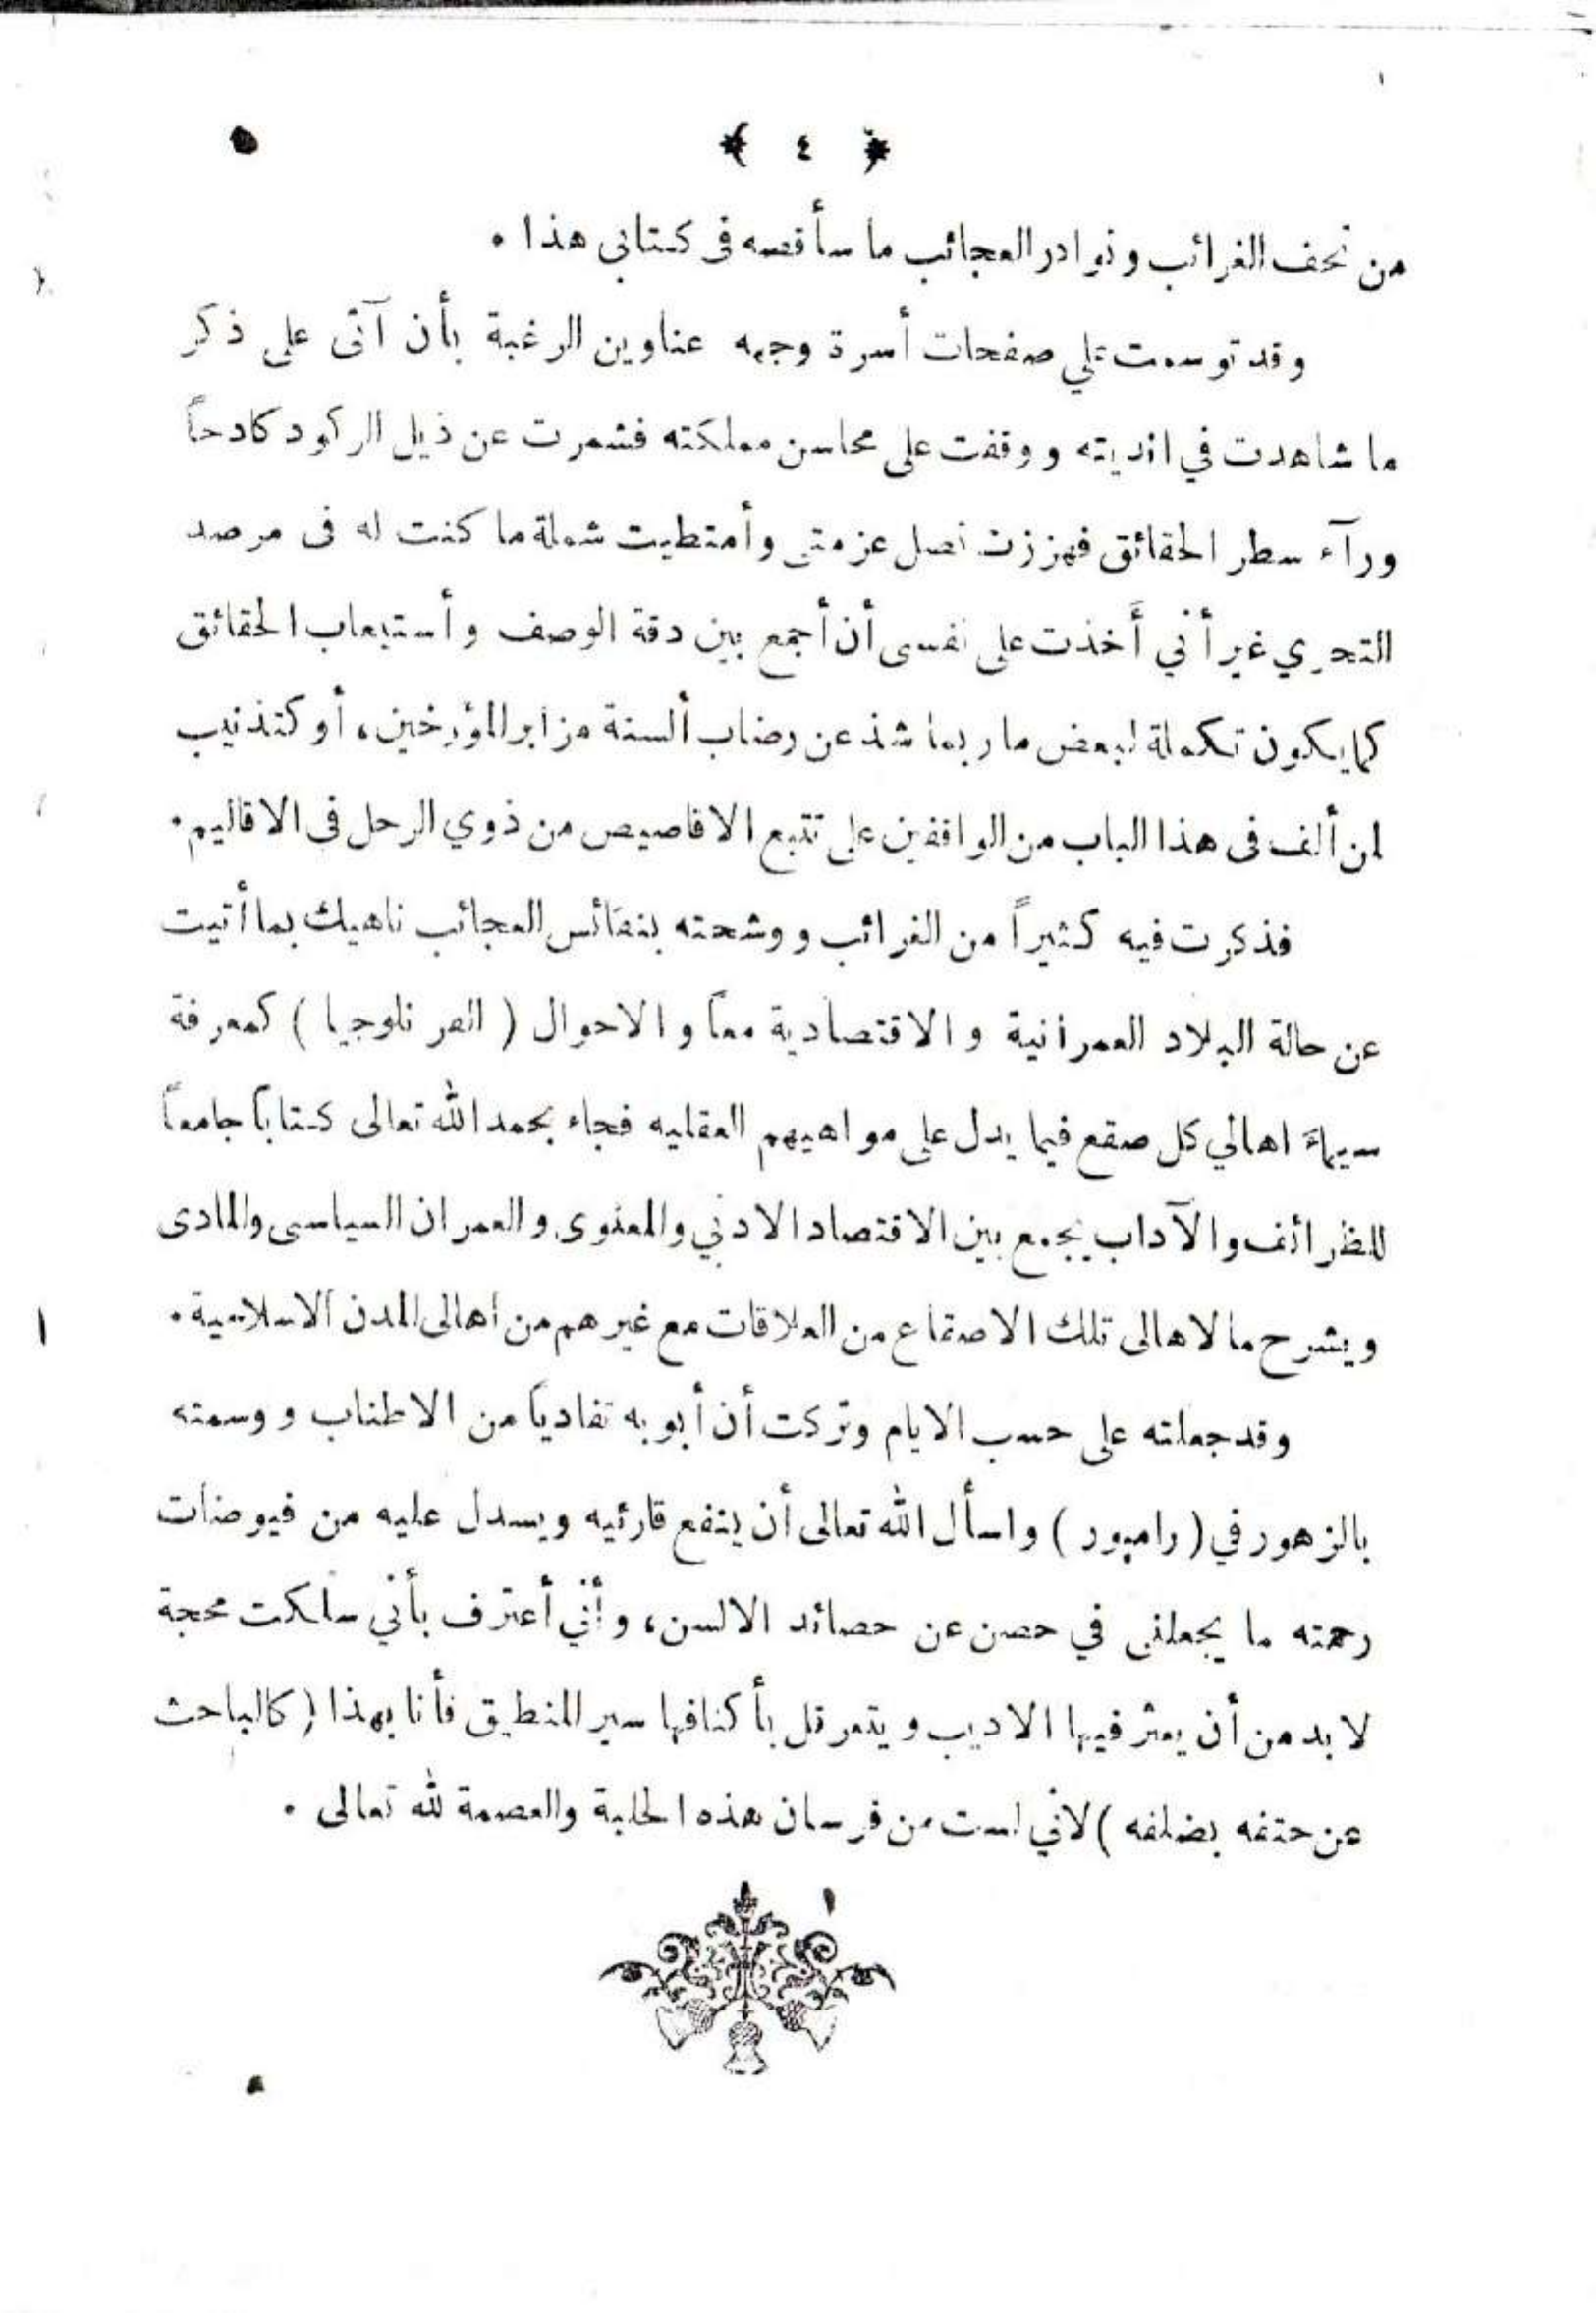 ٤
من تحف الغرائب ونوادر العجائب ما سأقصه في كتابي هذا .
وقد توسمت علي صفحات أسرة وجهه عناوين الرغبة بأن آتى على ذكر
ما شاهدت في انديته ووقفت على محاسن مملكته فشمرت عن ذيل الركود كادحاً
ورآء سطر الحقائق فهززت نصل عزمتي وأمتطيت شملة ما كنت له فى مرصد
التحري غير أني أخذت على نفسى أن أجمع بين دقة الوصف وأستيعاب الحقائق
كما يكون تكملة لبعض ما ربما شذ عن رضاب ألسنة مزابر المؤرخين، أو كتذنيب
لمن ألف فى هذا الباب من الواقفين على تتبع الاقاصيص من ذوي الرحل فى الاقاليم .
فذكرت فيه كثيراً من الغرائب ووشحته بنفائس العجائب ناهيك بما أتيت
عن حالة البلاد العمرانية والاقتصادية معاً والاحوال ( الفرنلوجيا ) كمعرفة
سيماء اهالي كل صقع فيما يدل على مواهبهم العقليه فجاء بحمد الله تعالى كتاباً جامعاً
للظرائف والآداب يجمع بين الاقتصاد الادبي والمعنوى والعمران السياسى والمادى
ويشرح ما لاهالى تلك الاصقاع من العلاقات مع غيرهم من اهالى المدن الاسلامية .
وقد جعلته على حسب الايام وتركت أن أبوبه تفادياً من الاطناب ووسمته
بالزهور في ( رامپور ) واسأل الله تعالى أن ينفع قارئيه ويسدل عليه من فيوضات
رحمته ما يجعلنى في حصن عن حصائد الالسن، وأنني أعترف بأني سلكت محجة
لا بد من أن يعثر فيها الاديب ويتعرقل بأكنافها سير المنطيق فأنا بهذا ( كالباحث
عن حتفه بضلفه ) لاني لست من فرسان هذه الحلبة والعصمة لله تعالى .